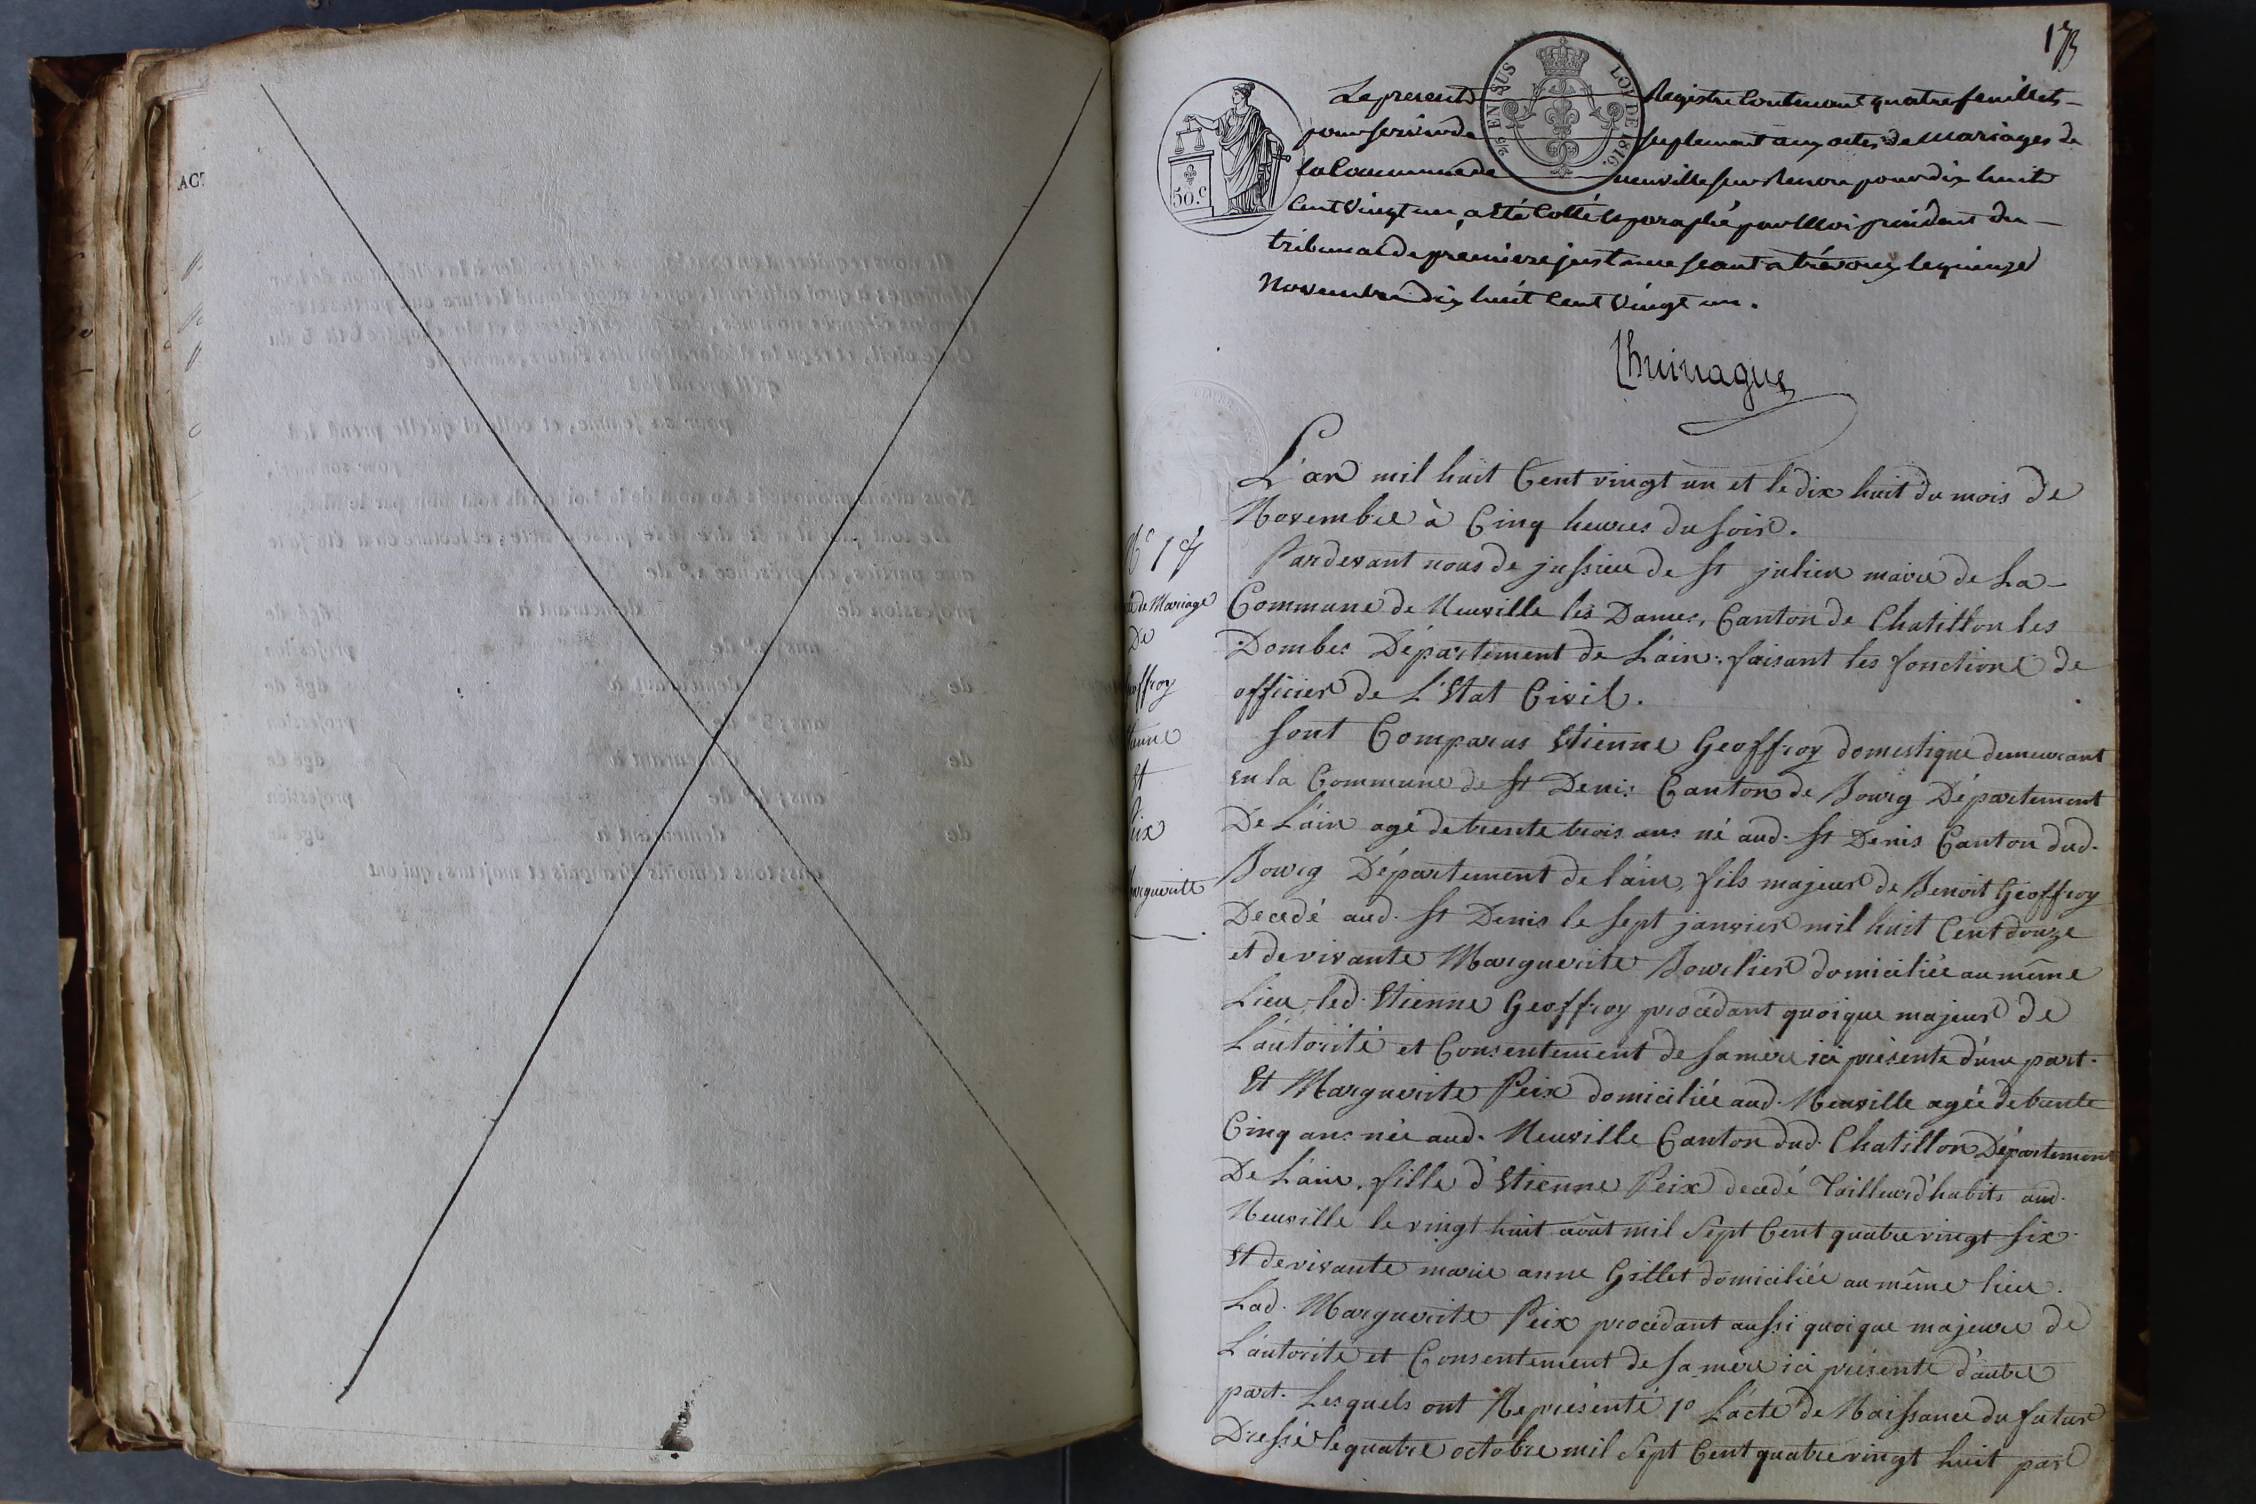 ACT
50.c
2/5 EN SUS
LOI DE 1816.
Le present Registre Contenant quatre feuillets
pour servir de suplement aux actes de Mariages de
la Commune de neuville sur Renon pour dix huit
Cent Vingt un, a Eté Cotté et paraphé par Moi president du
tribunal de premiere instance seant a trévoux le quinze
Novembre dix huit Cent Vingt un.
L'an mil huit Cent vingt un et le dix huit du mois de
Novembre à Cinq heures du soir.
Pardevant nous de jussieu de St julien maire de La
Commune de Neuville les Dames, Canton de Chatillon les
Dombes Département de L'ain, faisant les fonctions de
officier de L'Etat Civil.
Sont Comparus Etienne Geoffroy domestique demeurant
en la Commune de St Denis Canton de Bourg Département
De L'ain agé de trente trois ans né aud. St Denis Canton dud.
Bourg Département de l'ain, fils majeur de Benoit Geoffroy
Decedé aud. St Denis le sept janvier mil huit Cent douze
et de vivante Marguerite Bourlier domiciliée au même
Lieu, led. Etienne Geoffroy procédant quoique majeur de
L'autorité et Consentement de sa mère ici présente d'une part.
Et Marguerite Peix domiciliée aud. Neuville agée de trente
Cinq ans née aud. Neuville Canton dud. Chatillon Département
De L'ain, fille d'Etienne Peix decedé Tailleur d'habits aud.
Neuville le vingt huit août mil Sept Cent quatre vingt six
Et de vivante marie anne Gillet domiciliée au même lieu.
Lad. Marguerite Peix procédant aussi quoique majeure de
L'autorité et Consentement de sa mère ici présente d'autre
part. Lesquels ont Représenté 1o L'acte de Naissance du futur
Dressé le quatre octobre mil Sept Cent quatre vingt huit par
de Mariage
De
offroy
Et
eix
arguerite